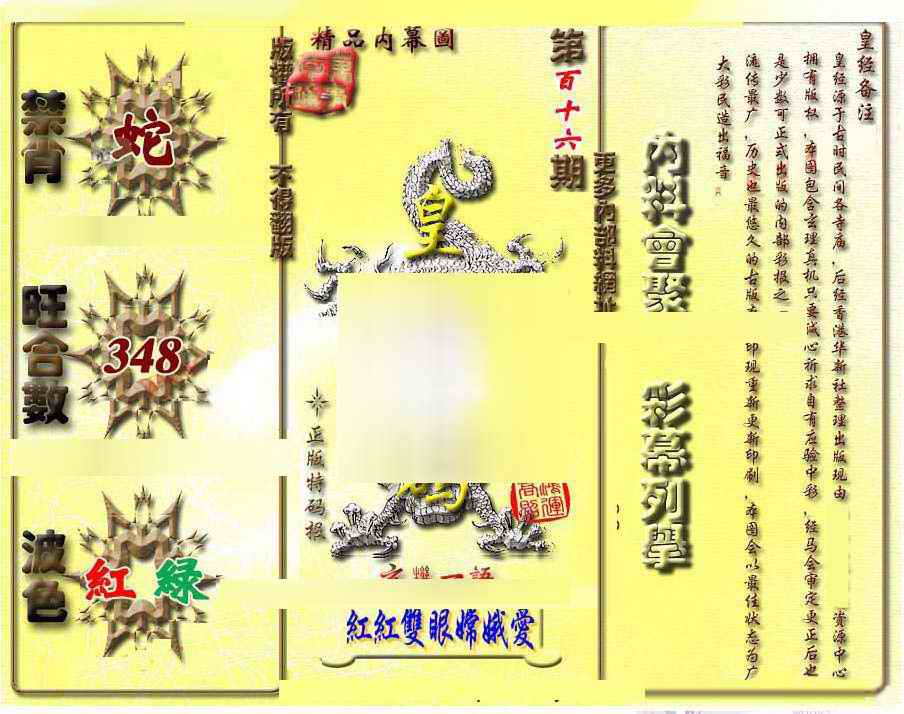 皇经备注
皇经源于古时民间各寺庙,后经香港华新社整理出版现由 资源中心
拥有版权,本图包含玄理真机只要诚心祈求自有应验中彩,经马会审定更正后也
是少数可正式出版的内部彩报之
流传最广,历史也最悠久的古版 印现重新更新印刷,本图会以最佳状态为广
大彩民造出福音
内料會聚
彩幕列舉
更多內部料網址
第百十六期
精品内幕圖
皇
正版特码报
紅紅雙眼嫦娥愛
版權所有 不得翻版
禁肖
蛇
旺合數
348
波色
紅 綠